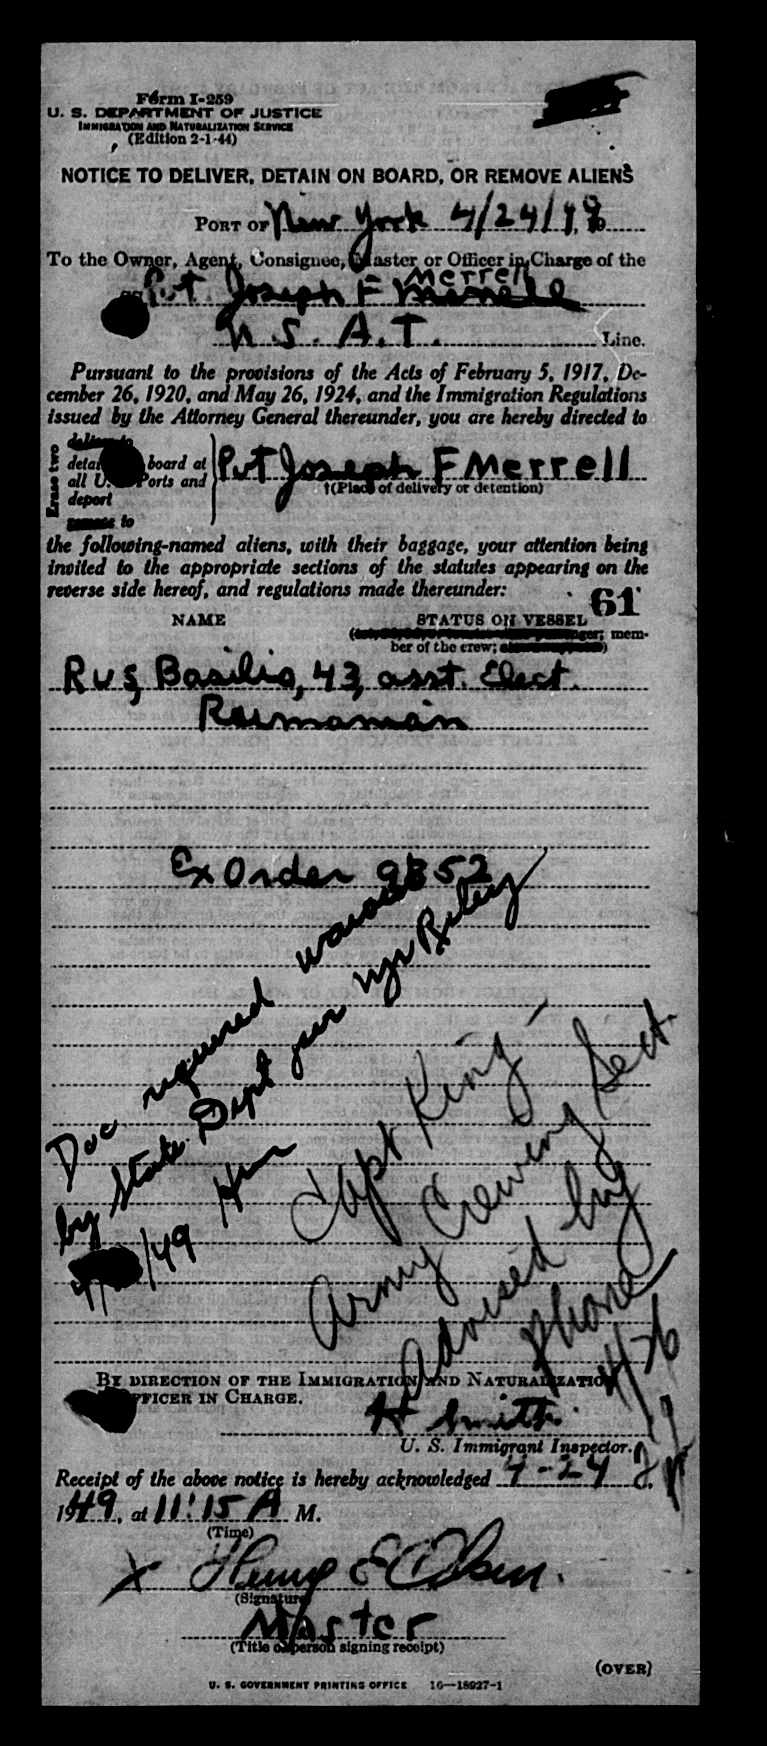 Form I-259
U. S. DEPARTMENT OF JUSTICE
IMMIGRATION AND NATURALIZATION SERVICE
(Edition 2-1-44)
NOTICE TO DELIVER, DETAIN ON BOARD, OR REMOVE ALIENS
PORT OF New York 4/24/49
To the Owner, Agent, Consignee, Master or Officer in Charge of the
Merrell
Pvt Joseph F
U. S. A. T. Line.
Pursuant to the provisions of the Acts of February 5, 1917, De-
cember 26, 1920, and May 26, 1924, and the Immigration Regulations
issued by the Attorney General thereunder, you are hereby directed to
Erase two
deliver to
board at
all U. Ports and
deport
to
Pvt Joseph F Merrell
†(Place of delivery or detention)
the following-named aliens, with their baggage, your attention being
invited to the appropriate sections of the statutes appearing on the
reverse side hereof, and regulations made thereunder:
61
NAME STATUS ON VESSEL
mem-
ber of the crew;
Rus, Basilio, 43, asst. Elect.
Roumanian
Ex Order 9352
Doc required waived
by State Dept per
4/ /49
Capt King -
Army Crewing Sect.
Advised by
phone
4/26
BY DIRECTION OF THE IMMIGRATION AND NATURALIZATION
OFFICER IN CHARGE.
H Smith
U. S. Immigrant Inspector.
Receipt of the above notice is hereby acknowledged 4-24,
1949, at 11:15 A M.
(Time)
X Henry E Olsen.
(Signature)
Master
(Title of person signing receipt)
(OVER)
U. S. GOVERNMENT PRINTING OFFICE 16—18927-1